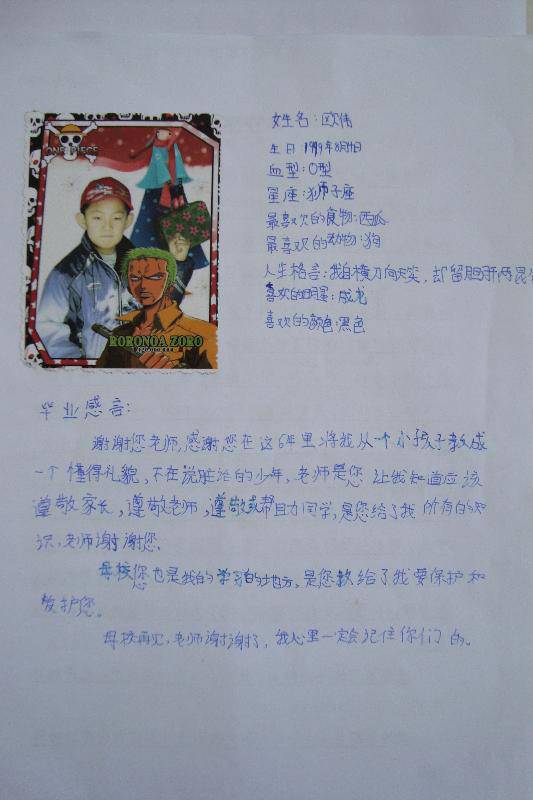 ONE PIECE
RORONOA ZORO
姓名:欧伟
生日 1999年8月
血型:O型
星座:狮子座
最喜欢的食物:西瓜
最喜欢的动物:狗
人生格言:我自横刀向天笑,却留肝胆两昆
喜欢的明星:成龙
喜欢的颜色:黑色
毕业感言:
谢谢您老师,感谢您在这6年里将我从一个小孩子教成
一个懂得礼貌,不在说脏话的少年,老师是您让我知道应该
遵敬家长,遵敬老师,遵敬或帮助同学,是您给了我所有的知
识,老师谢谢您。
母校您也是我的学习的地方,是您给了我要保护和
爱护您。
母校再见,老师谢谢了,我心里一定会记住你们的。